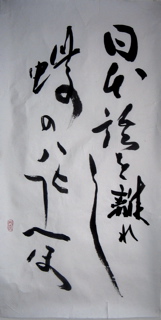 日本語を離れし
蝶のハヒフヘホ